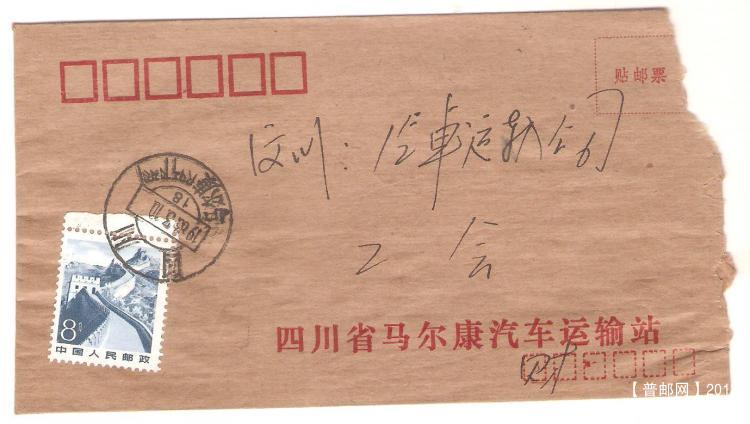 贴邮票
汶川:汽车运输公司
工会
四川省马尔康汽车运输站
财
8分
中国人民邮政
四川
18
【普邮网】201